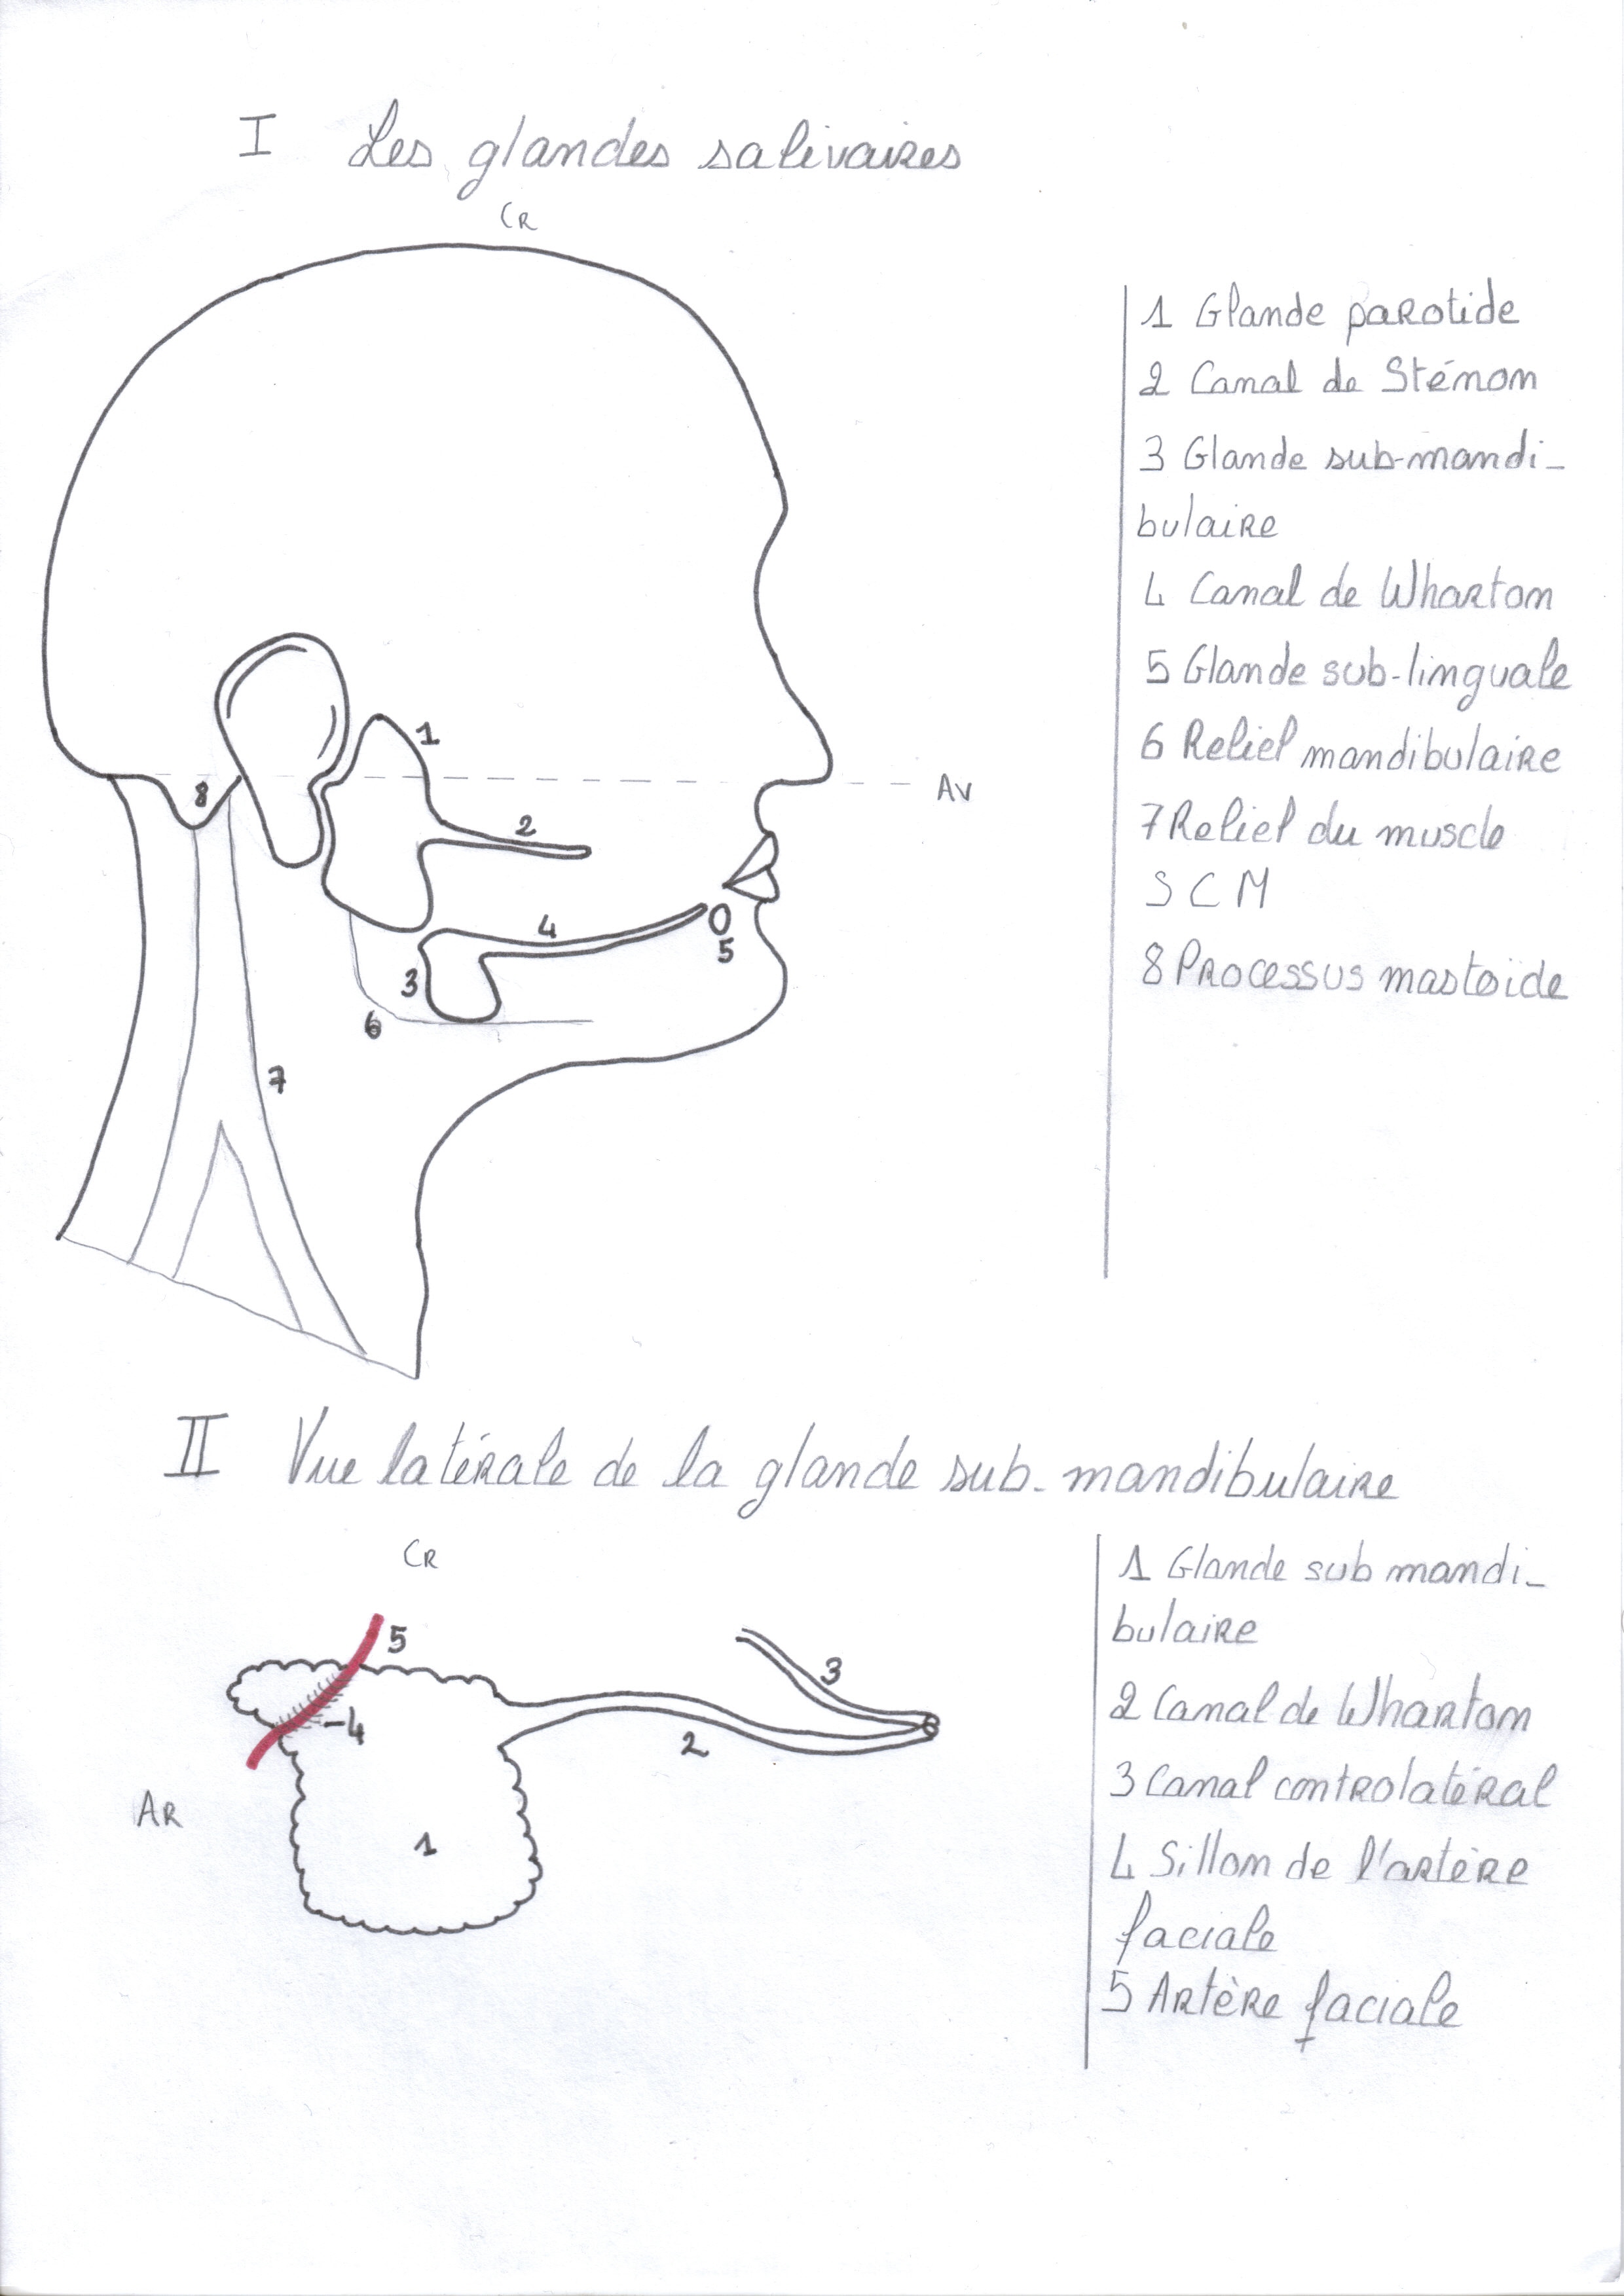 I Les glandes salivaires
CR
1 Glande parotide
2 Canal de Sténon
3 Glande sub-mandi-
bulaire
4 Canal de Wharton
5 Glande sub-linguale
6 Relief mandibulaire
7 Relief du muscle
SCM
8 Processus mastoïde
1
8
AV
2
4
5
3
6
7
II Vue latérale de la glande sub-mandibulaire
CR
1 Glande sub mandi-
bulaire
2 Canal de Wharton
3 Canal controlatéral
4 Sillon de l'artère
faciale
5 Artère faciale
5
3
4
2
AR
1